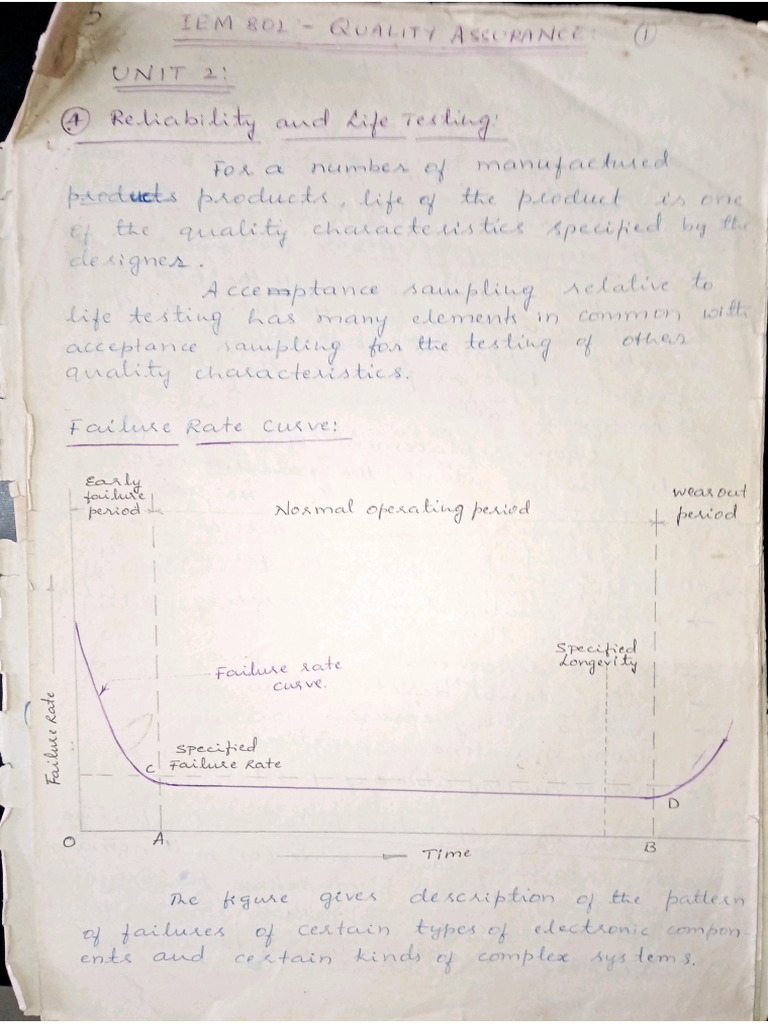 5
IEM 802 - QUALITY ASSURANCE: (1)
UNIT 2:
(A) Reliability and Life Testing:
For a number of manufactured
products products, life of the product is one
of the quality characteristics specified by the
designer.
Acceptance sampling relative to
life testing has many elements in common with
acceptance sampling for the testing of other
quality characteristics.
Failure Rate Curve:
Early
failure
period
Normal operating period
wearout
period
Specified
Longevity
Failure rate
curve.
Specified
Failure Rate
Failure Rate
C
D
O
A
B
Time
The figure gives description of the pattern
of failures of certain types of electronic compon-
ents and certain kinds of complex systems.